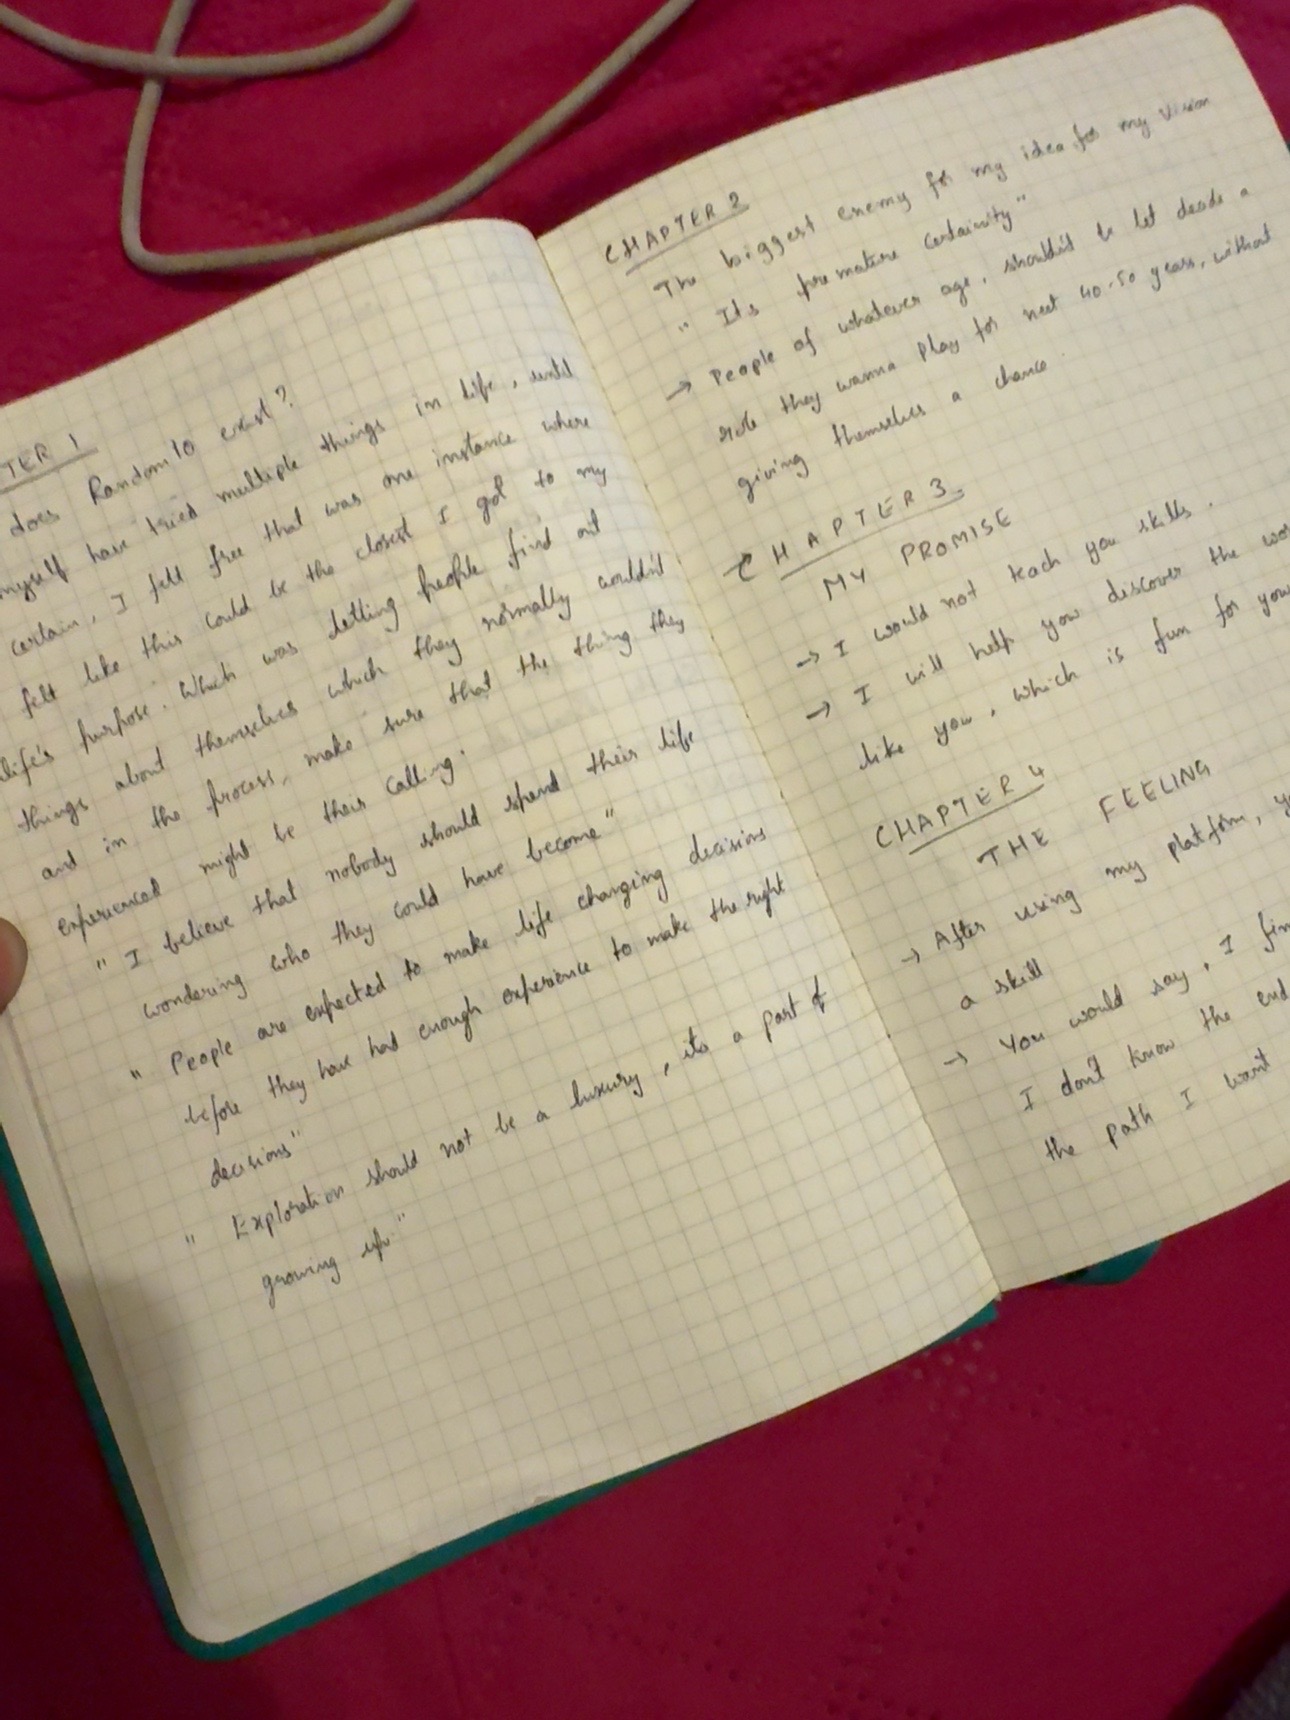 TER 1
does Random10 exist?
myself have tried multiple things in life, until
certain, I felt free that was one instance where
felt like this could be the closest I got to my
life's purpose. Which was letting people find out
things about themselves which they normally wouldn't
and in the process, make sure that the thing they
experienced might be their calling.
" I believe that nobody should spend their life
wondering who they could have become"
" People are expected to make life changing decisions
before they have had enough experience to make the right
decisions"
" Exploration should not be a luxury, its a part of
growing up"
CHAPTER 2
The biggest enemy for my idea, for my vision
" Its premature certainity"
→ People of whatever age, shouldn't be let decide a
role they wanna play for next 40-50 years, without
giving themselves a chance
CHAPTER 3
MY PROMISE
→ I would not teach you skills.
→ I will help you discover the wo
like you, which is fun for you
CHAPTER 4
THE FEELING
→ After using my platform, y
a skill
→ You would say, I fin
I don't know the end
the path I want